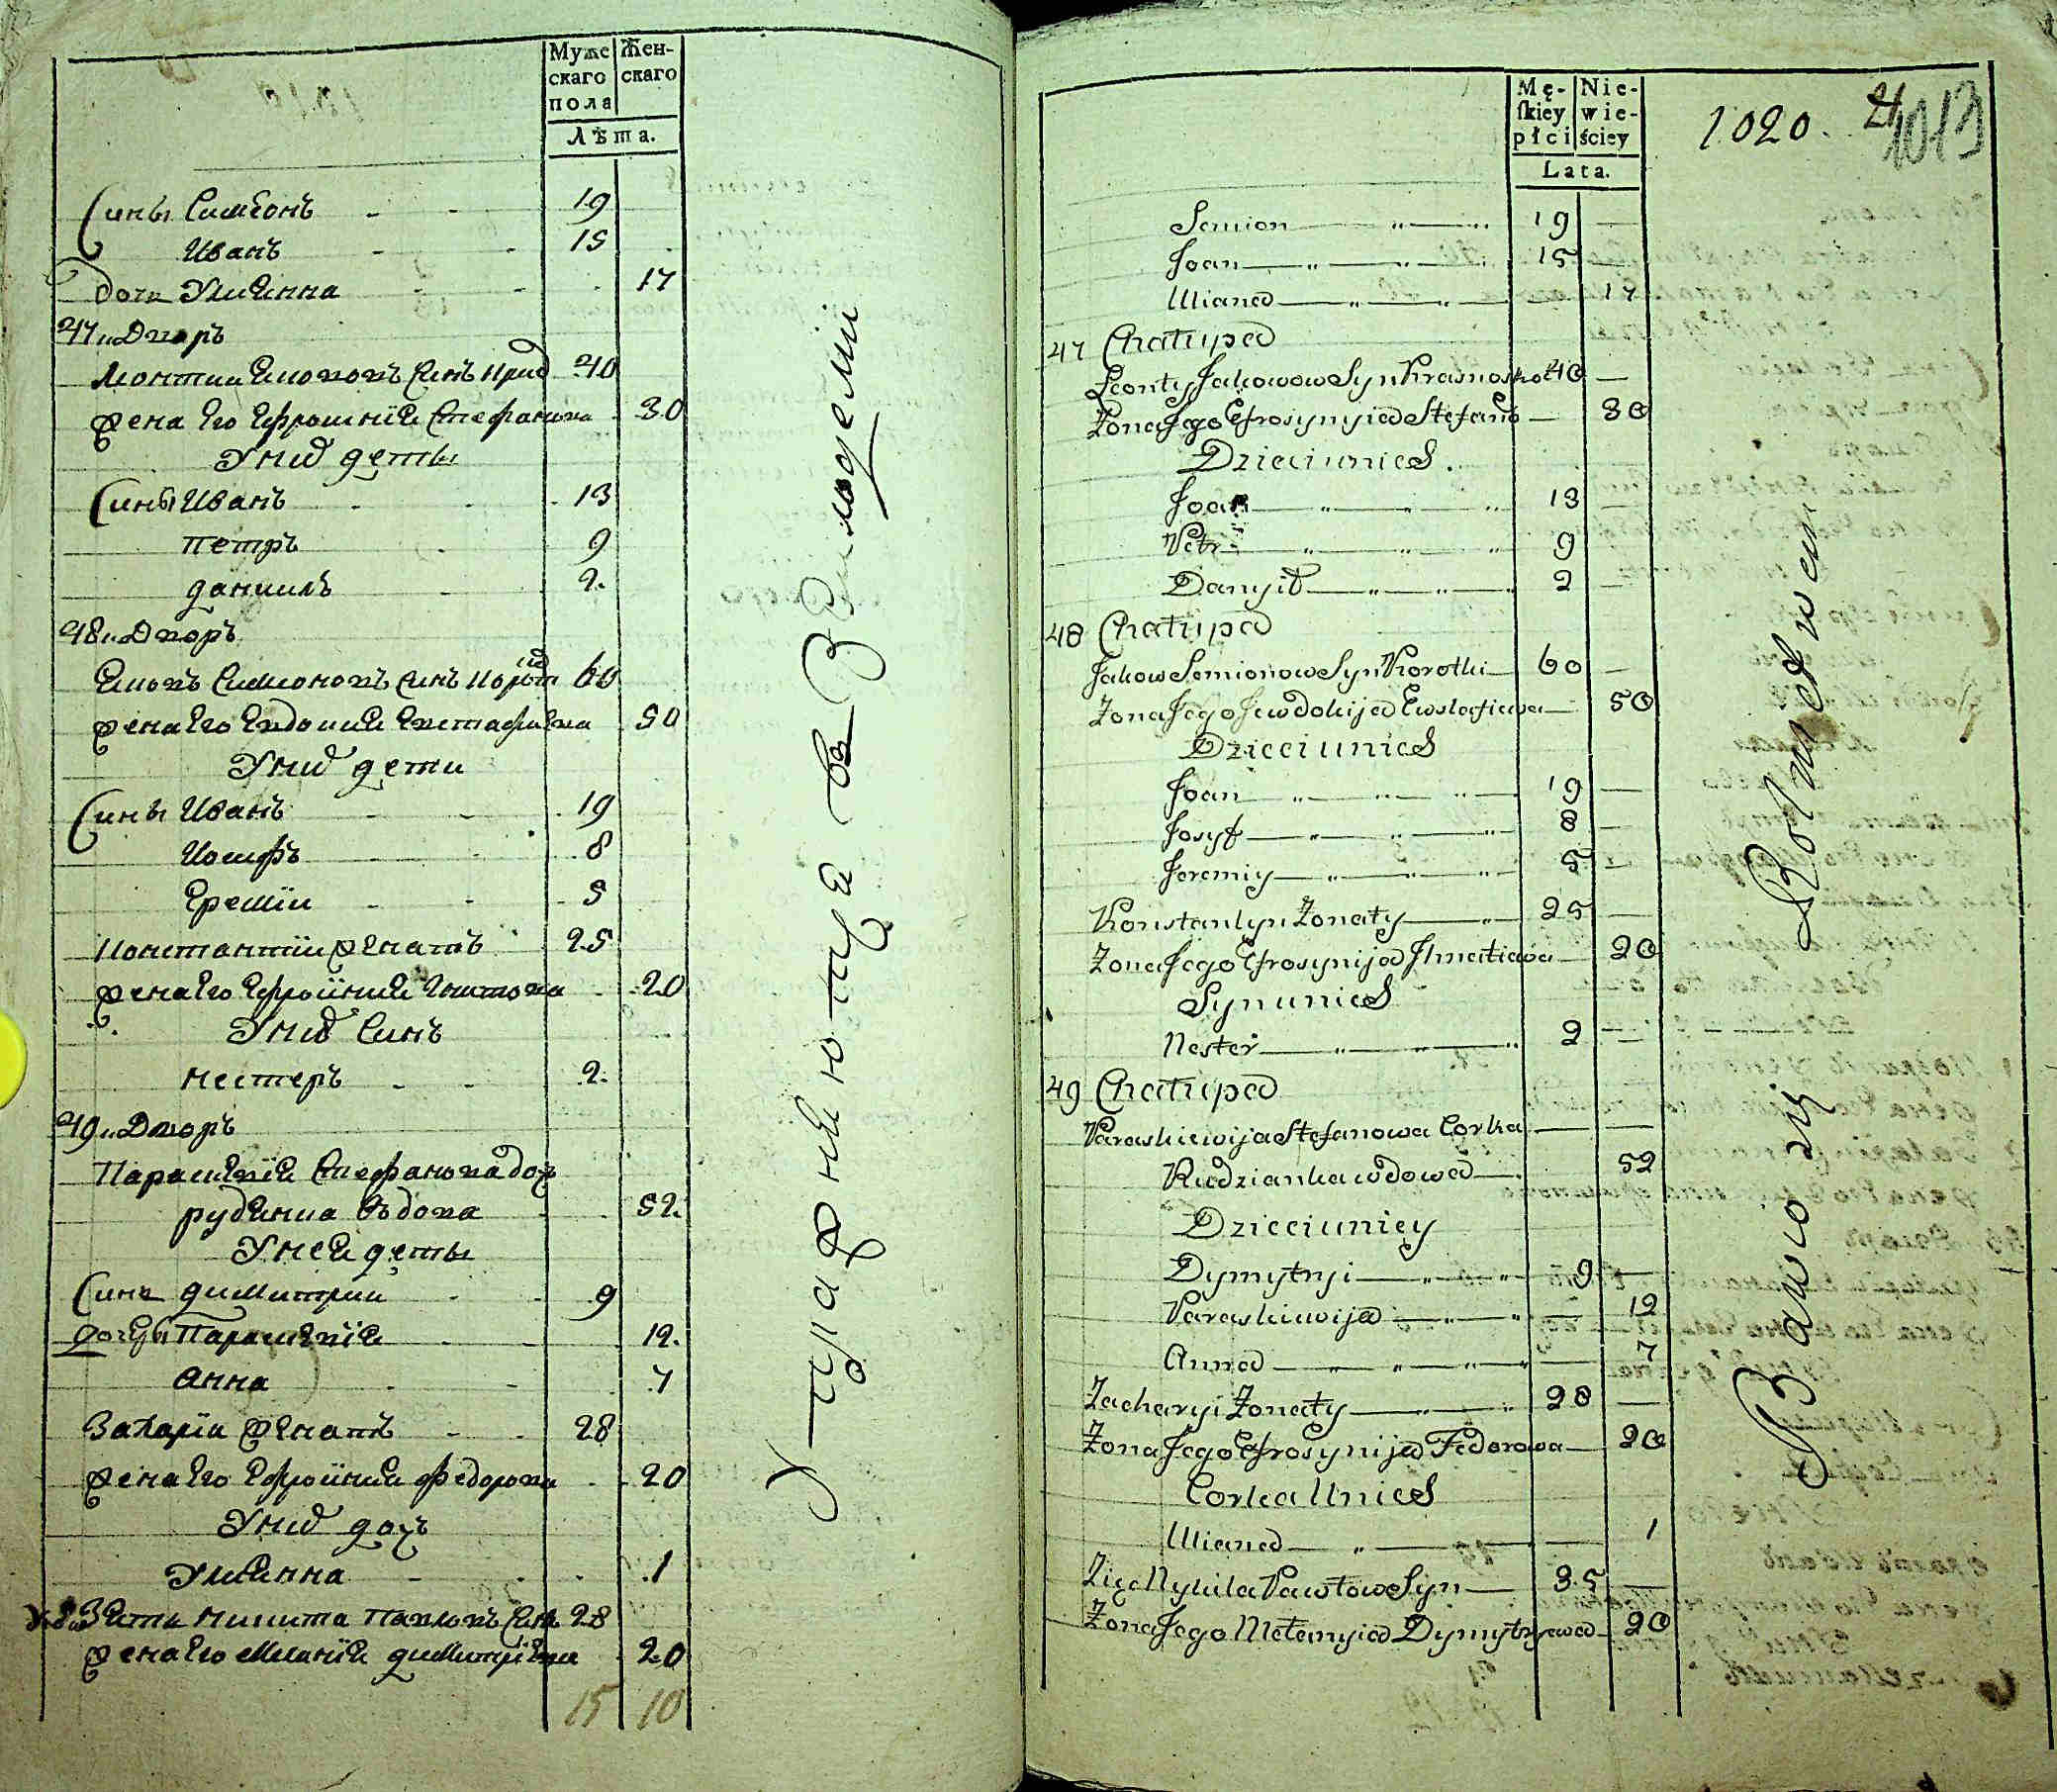 Муже
скаго
пола
Жен-
скаго
Лѣта.
Сины Симеонъ - - 19
Иванъ - - 15
дочь Улиянна - - 17
47 и Дворъ
Леонтии Якововъ Синъ 40
жена Его Ефросиния Стефанова 30
У нид деты
Сины Иванъ 13
Петръ 9
даниилъ 2.
48 и Дворъ
Яковъ Симионовъ Синъ 60
жена Его Евдокия Евстафиева 50
У нид дети
Сины Иванъ 19
Иосифъ 8
Еремїи 5
Константїи женатъ 25
жена Его Ефросиния 20
У нид Синъ
Нестеръ 2.
49 и Дворъ
Параскевїя Стефанова доч
рудянка Вьдова 52.
У неи деты
Синъ димитрии 9
дочеры Параскевїя 12.
Анна 7
Захарїи женатъ 28
жена Его Ефросиния Федорова 20
У нид доч
Улиянна 1
Зять Никита Павловъ Синъ 28
жена Его Меланїя димитрїева 20
15 10
Mę-
skiey
płci
Nie-
wie-
ściey
Lata.
1020.
1013
Semion 19
Joan 15
Uliana 17
47 Chatupa
Leonty Jakowow Syn Krasnosko 40
Zona Jego Efrosynyia Stefano 30
Dzieci u nieo.
Joan 13
Petr 9
Danyił 2
48 Chatupa
Jakow Semionow Syn Korotki 60
Zona Jego Jewdokija Ewstafiewa 50
Dzieci u nieo
Joan 19
Josyf 8
Jeremiy 5
Konstantyn Zonaty 25
Zona Jego Efrosynija 20
Syn u nieo
Nester 2
49 Chatupa
Paraskiewija Stefanowa Corka
Rudzianka wdowa 52
Dzieci u niey
Dymytryi 9
Paraskiewija 12
Anna 7
Zacharyi Zonaty 28
Zona Jego Efrosynija Fedorowa 20
Corka U nieo
Uliana 1
Zięć Nykita Pawłow Syn 35
Zona Jego Melanyia Dymytryewa 20